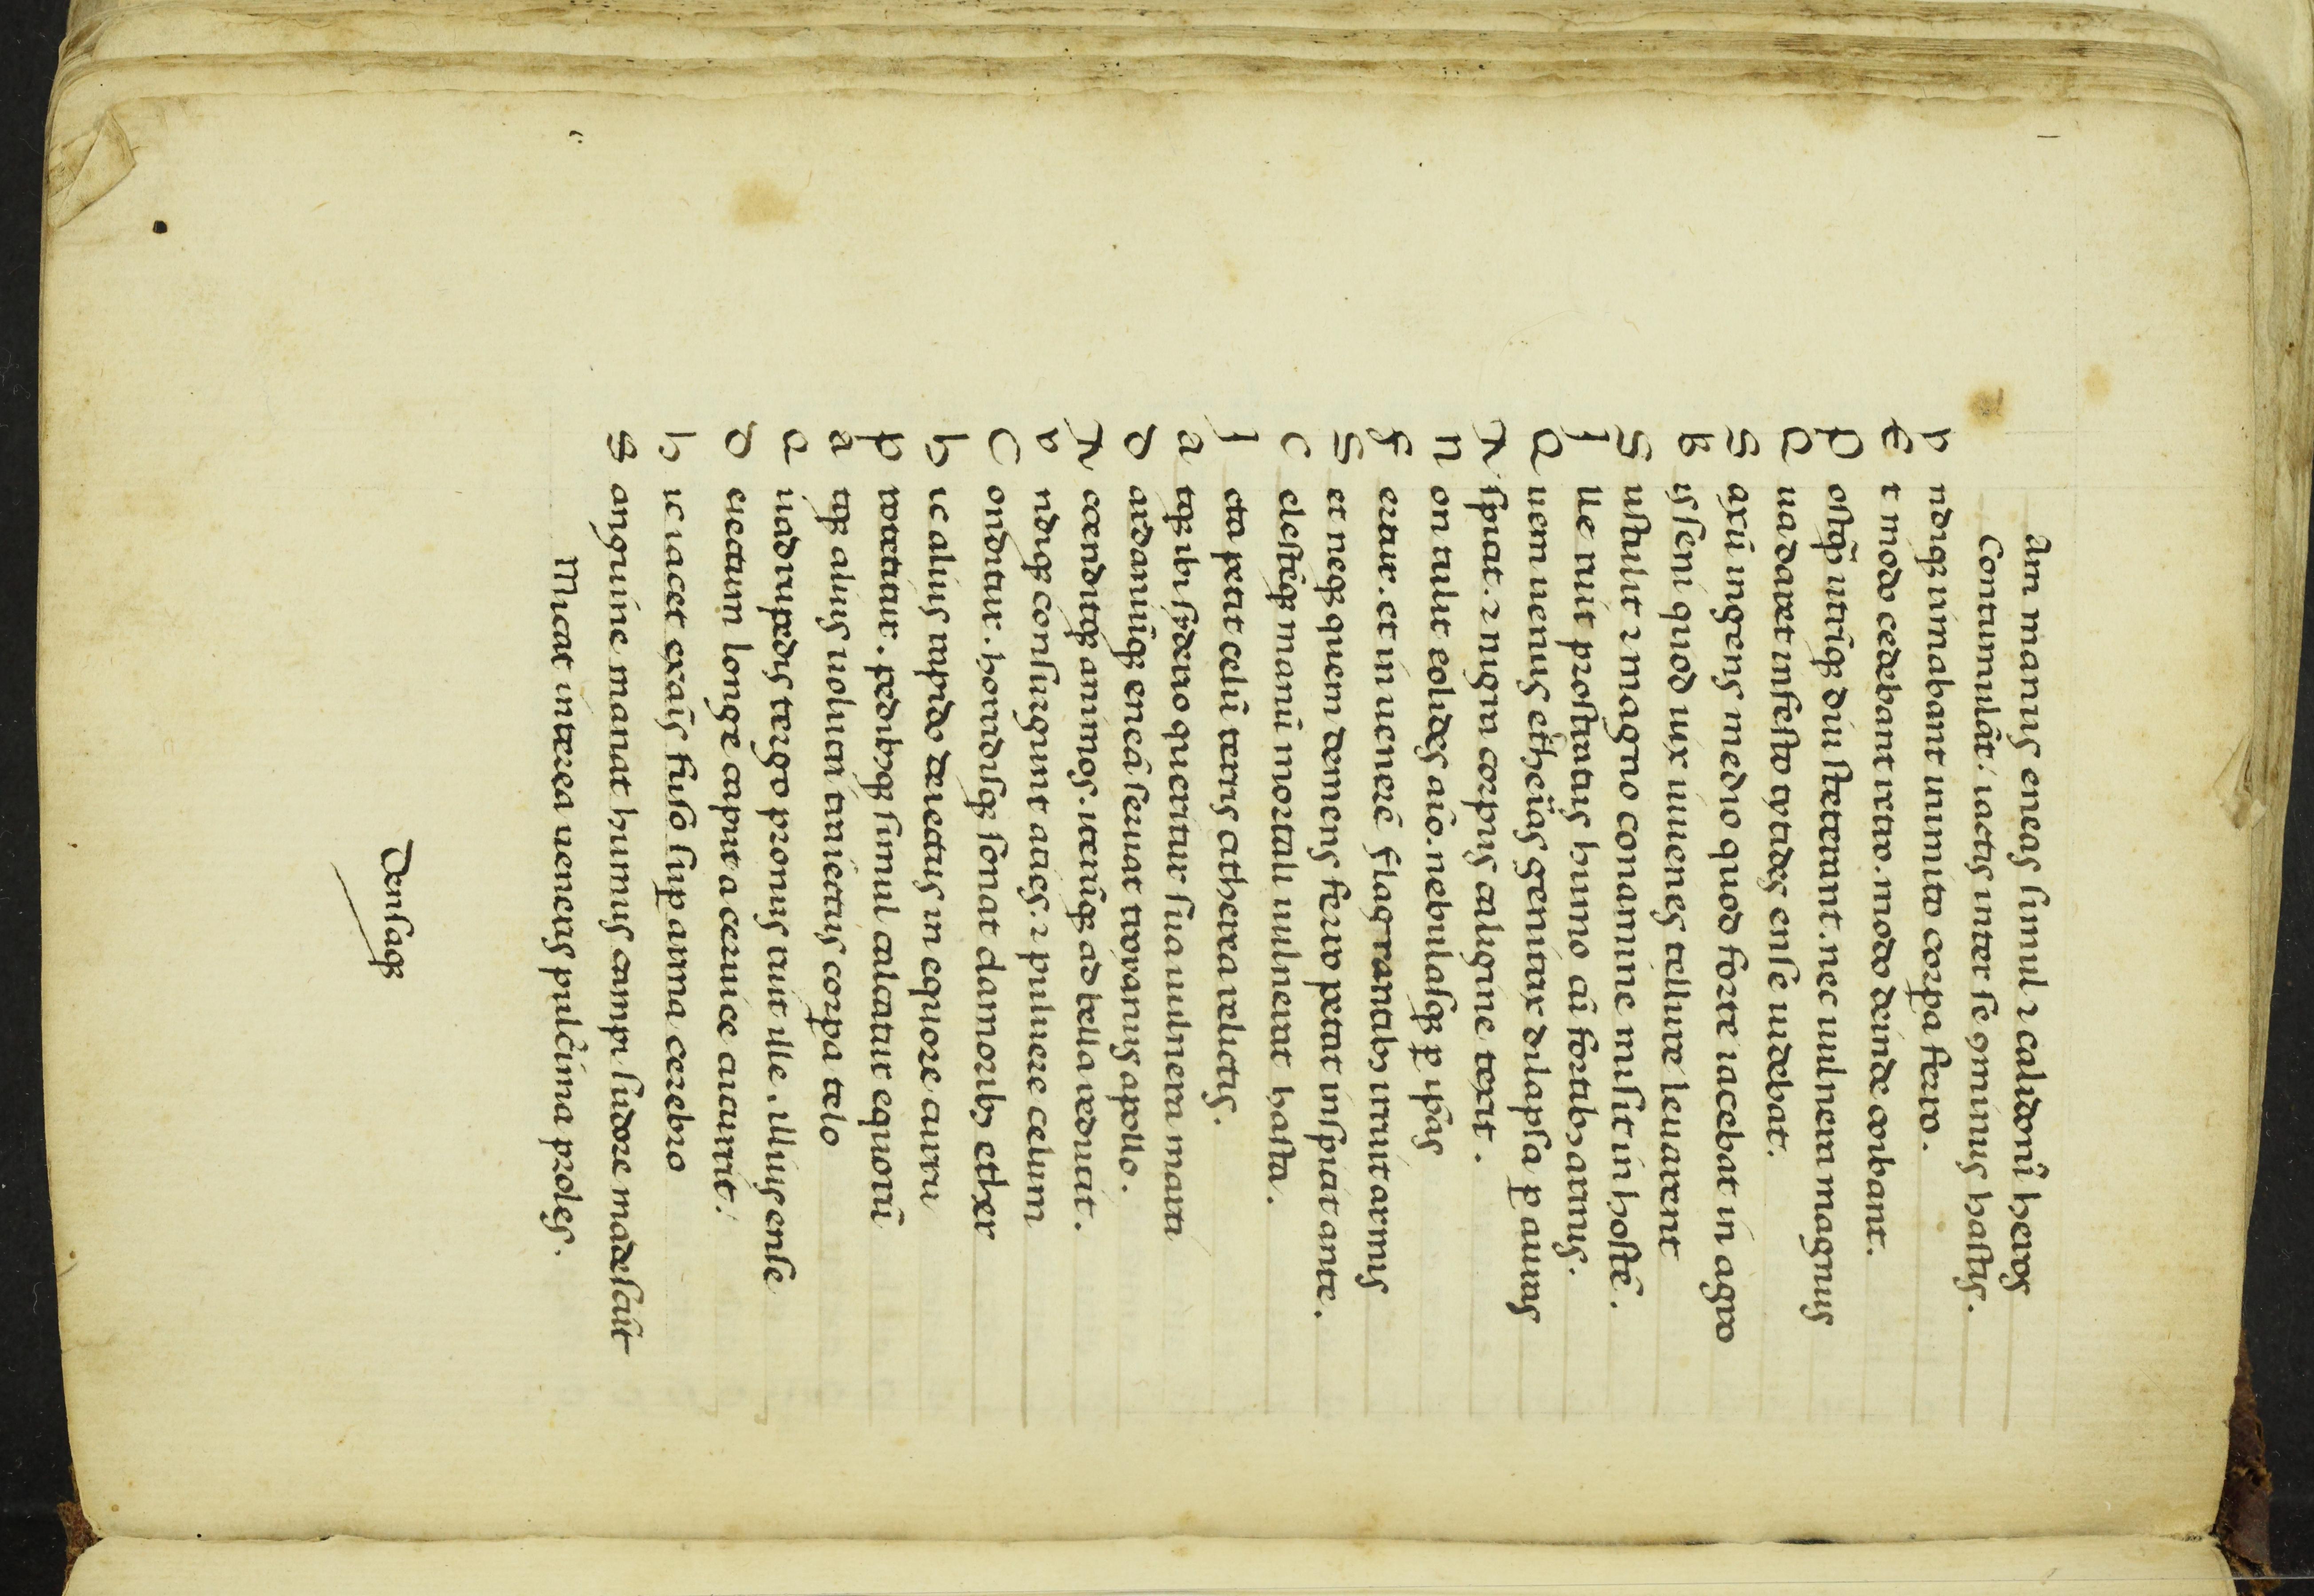 Am manus eneas simul ⁊ calidoniꝰ heros
Contumulāt: iactis inter se ominus hastis.
V ndiqꝫ rimabant inimico corpa ferro.
E t modo cedebant retro. modo deinde coibant.
P ostqꝫ utriqꝫ diu steterant. nec uulnera magnus
Q ua daret infesto tytides ense uidebat.
S axū ingens medio quod forte iacebat in agro
B isseni quod uix iuuenes tellure leuarent
S ustulit ⁊ magno conamine misit in hostē.
I lle ruit prostratus humo cū fortibꝫ armis.
Q uem uenus etheȓas genitrix dilapsa p auras
E xcipit. ⁊ nigra corpus caligine texit.
N on tulit eolides aīo. nebulasqꝫ p ipas
F ertur. et in uenerē flagrantibꝫ irruit armis
S et neqꝫ quem demens ferro petat inspicit ante.
C elestēqꝫ manū mortali uulnerat hasta.
I cta petit celū terris athera relictis.
A tqꝫ ibi sydereo queritur sua uulnera marti
D ardaniūqꝫ eneā seruat troyanus apollo.
A ccenditqꝫ animos. iterūqꝫ ad bella reducit.
V ndiqꝫ consurgunt acies. ⁊ puluere celum
C onditur. horridisqꝫ sonat clamoribꝫ ether
H ic alius rapido deiectus in equore curru
P roteritur. pedibqꝫ simul calcatur equorū
A tqꝫ alius uolucri traiectus corpa telo
Q uadrupedis tergo pronus ruit ille. illius ense
D eiectum longe caput a ceruice cucurrit:
H ic iacet exaīs fuso sup arma cerebro
S anguine manat humus campi sudore madescūt
Micat interea ueneris pulcīma proles.
Densasqꝫ